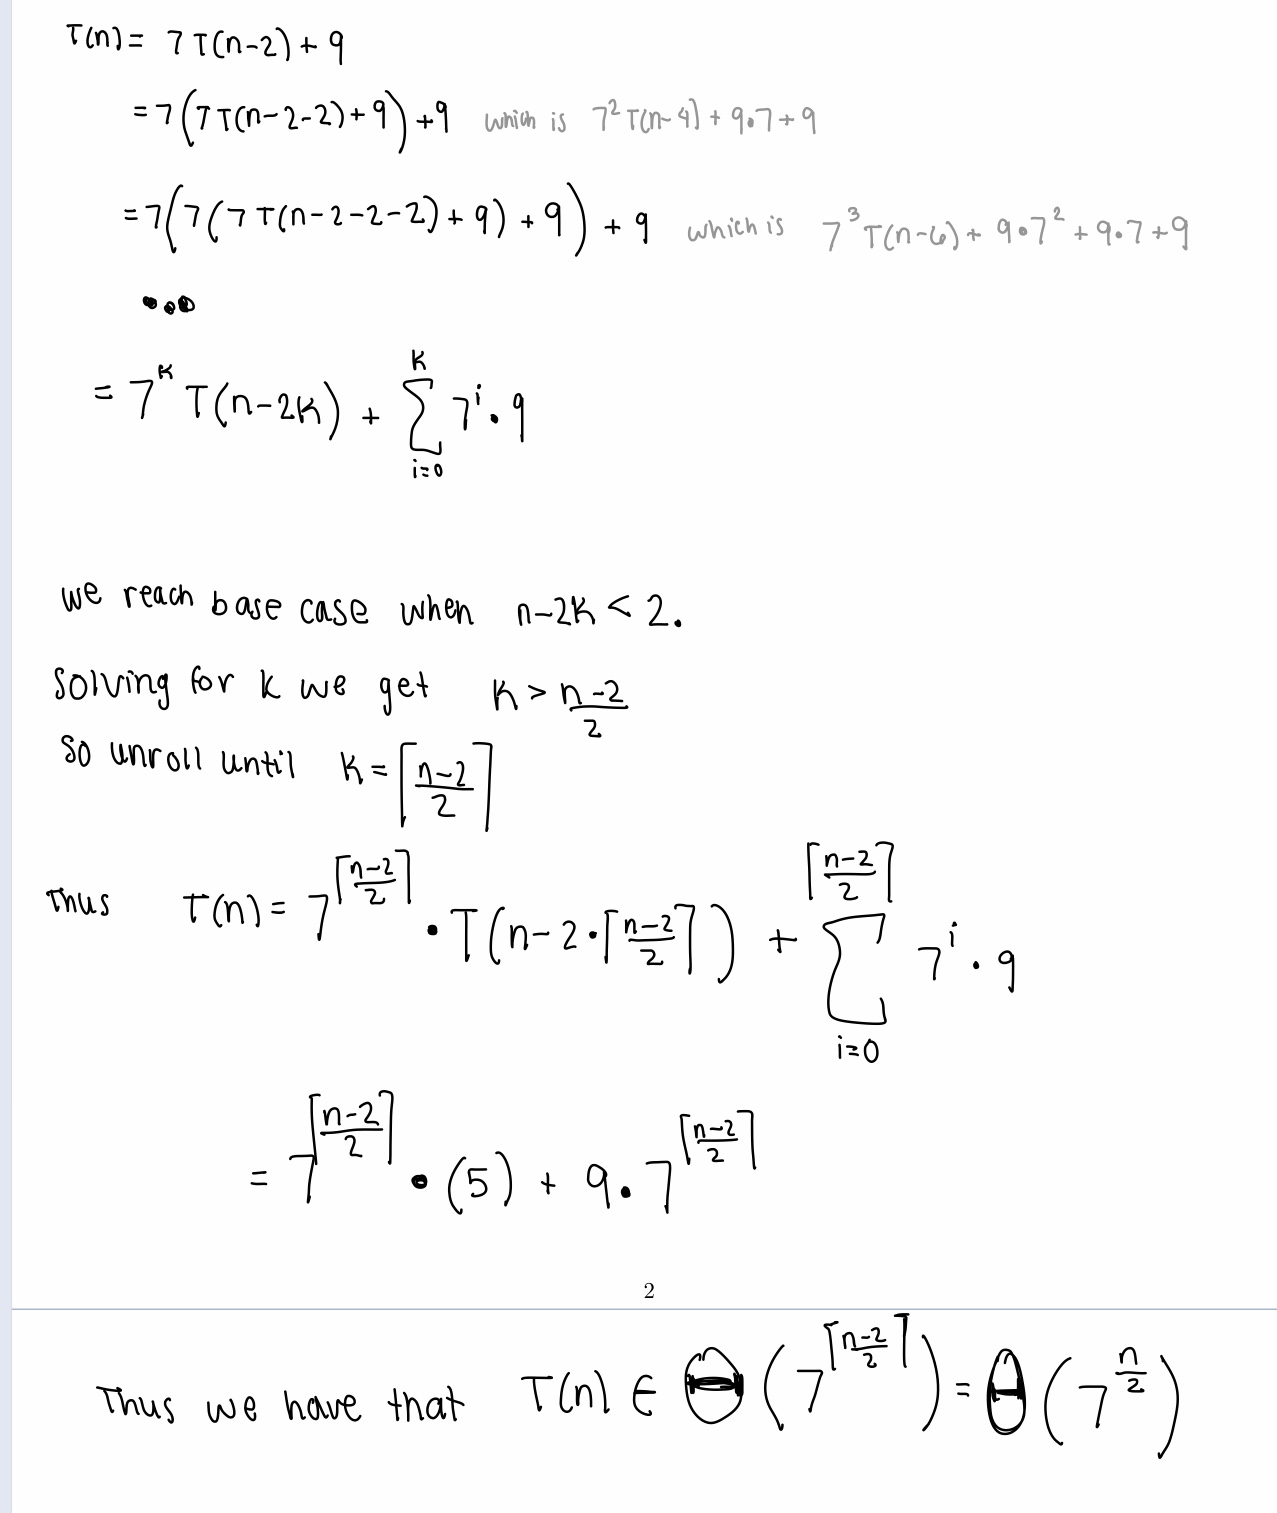 T(n) = 7T(n-2) + 9
= 7(7T(n-2-2)+9)+9 which is 7² T(n-4) + 9·7+9
= 7(7(7T(n-2-2-2)+9)+9)+9 which is 7³ T(n-6) + 9·7² + 9·7+9
...
= 7^k T(n-2k) + ∑_{i=0}^{k} 7^i · 9
we reach base case when n-2k < 2.
Solving for k we get k > (n-2)/2
So unroll until k = ⌈(n-2)/2⌉
Thus T(n) = 7^{⌈(n-2)/2⌉} · T(n-2·⌈(n-2)/2⌉) + ∑_{i=0}^{⌈(n-2)/2⌉} 7^i · 9
= 7^{⌈(n-2)/2⌉} · (5) + 9 · 7^{⌈(n-2)/2⌉}
2
Thus we have that T(n) ∈ Θ(7^{⌈(n-2)/2⌉}) = Θ(7^{n/2})